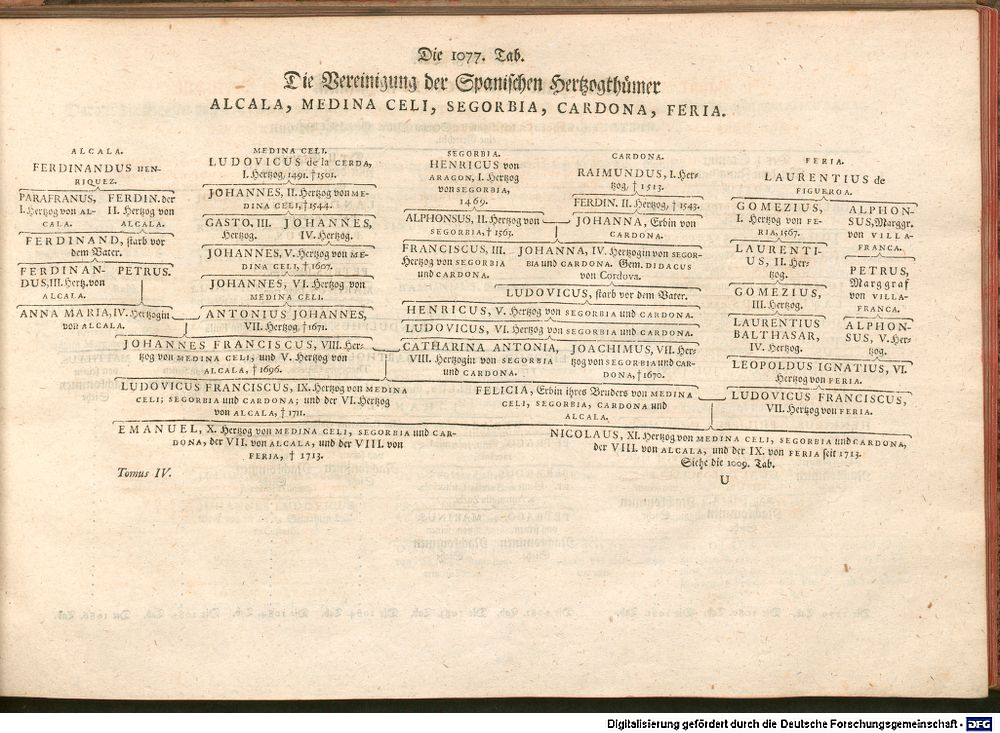 Die 1077. Tab.
Die Vereinigung der Spanischen Hertzogthümer
ALCALA, MEDINA CELI, SEGORBIA, CARDONA, FERIA.
ALCALA.
FERDINANDUS HEN-
RIQUEZ.
PARAFRANUS,
I. Hertzog von AL-
CALA.
FERDIN. der
II. Hertzog von
ALCALA.
FERDINAND, starb vor
dem Vater.
FERDINAN-
DUS, III. Hertz. von
ALCALA.
PETRUS.
ANNA MARIA, IV. Hertzogin
von ALCALA.
MEDINA CELI.
LUDOVICUS de la CERDA,
I. Hertzog, 1491. † 1501.
JOHANNES, II. Hertzog von ME-
DINA CELI, † 1544.
GASTO, III.
Hertzog.
JOHANNES,
IV. Hertzog.
JOHANNES, V. Hertzog von ME-
DINA CELI, † 1607.
JOHANNES, VI. Hertzog von
MEDINA CELI.
ANTONIUS JOHANNES,
VII. Hertzog, † 1671.
JOHANNES FRANCISCUS, VIII. Her-
tzog von MEDINA CELI; und V. Hertzog von
ALCALA, † 1696.
SEGORBIA.
HENRICUS von
ARAGON, I. Hertzog
von SEGORBIA,
1469.
ALPHONSUS, II. Hertzog von
SEGORBIA, † 1563.
CARDONA.
RAIMUNDUS, I. Her-
tzog, † 1513.
FERDIN. II. Hertzog, † 1543.
JOHANNA, Erbin von
CARDONA.
FRANCISCUS, III.
Hertzog von SEGORBIA
und CARDONA.
JOHANNA, IV. Hertzogin von SEGOR-
BIA und CARDONA. Gem. DIDACUS
von Cordova.
LUDOVICUS, starb vor dem Vater.
HENRICUS, V. Hertzog von SEGORBIA und CARDONA.
LUDOVICUS, VI. Hertzog von SEGORBIA und CARDONA.
CATHARINA ANTONIA,
VIII. Hertzogin von SEGORBIA
und CARDONA.
JOACHIMUS, VII. Her-
tzog von SEGORBIA und CAR-
DONA, † 1670.
FERIA.
LAURENTIUS de
FIGUEROA.
GOMEZIUS,
I. Hertzog von FE-
RIA, 1567.
ALPHON-
SUS, Marggr.
von VILLA-
FRANCA.
LAURENTI-
US, II. Her-
tzog.
PETRUS,
Marggraf
von VILLA-
FRANCA.
GOMEZIUS,
III. Hertzog.
LAURENTIUS
BALTHASAR,
IV. Hertzog.
ALPHON-
SUS, V. Her-
tzog.
LEOPOLDUS IGNATIUS, VI.
Hertzog von FERIA.
LUDOVICUS FRANCISCUS, IX. Hertzog von MEDINA
CELI; SEGORBIA und CARDONA; und der VI. Hertzog
von ALCALA, † 1711.
FELICIA, Erbin ihres Bruders von MEDINA
CELI, SEGORBIA, CARDONA und
ALCALA.
LUDOVICUS FRANCISCUS,
VII. Hertzog von FERIA.
EMANUEL, X. Hertzog von MEDINA CELI, SEGORBIA und CAR-
DONA, der VII. von ALCALA, und der VIII. von
FERIA, † 1713.
NICOLAUS, XI. Hertzog von MEDINA CELI, SEGORBIA und CARDONA,
der VIII. von ALCALA, und der IX. von FERIA seit 1713.
Siehe die 1009. Tab.
Tomus IV.
U
Digitalisierung gefördert durch die Deutsche Forschungsgemeinschaft - DFG